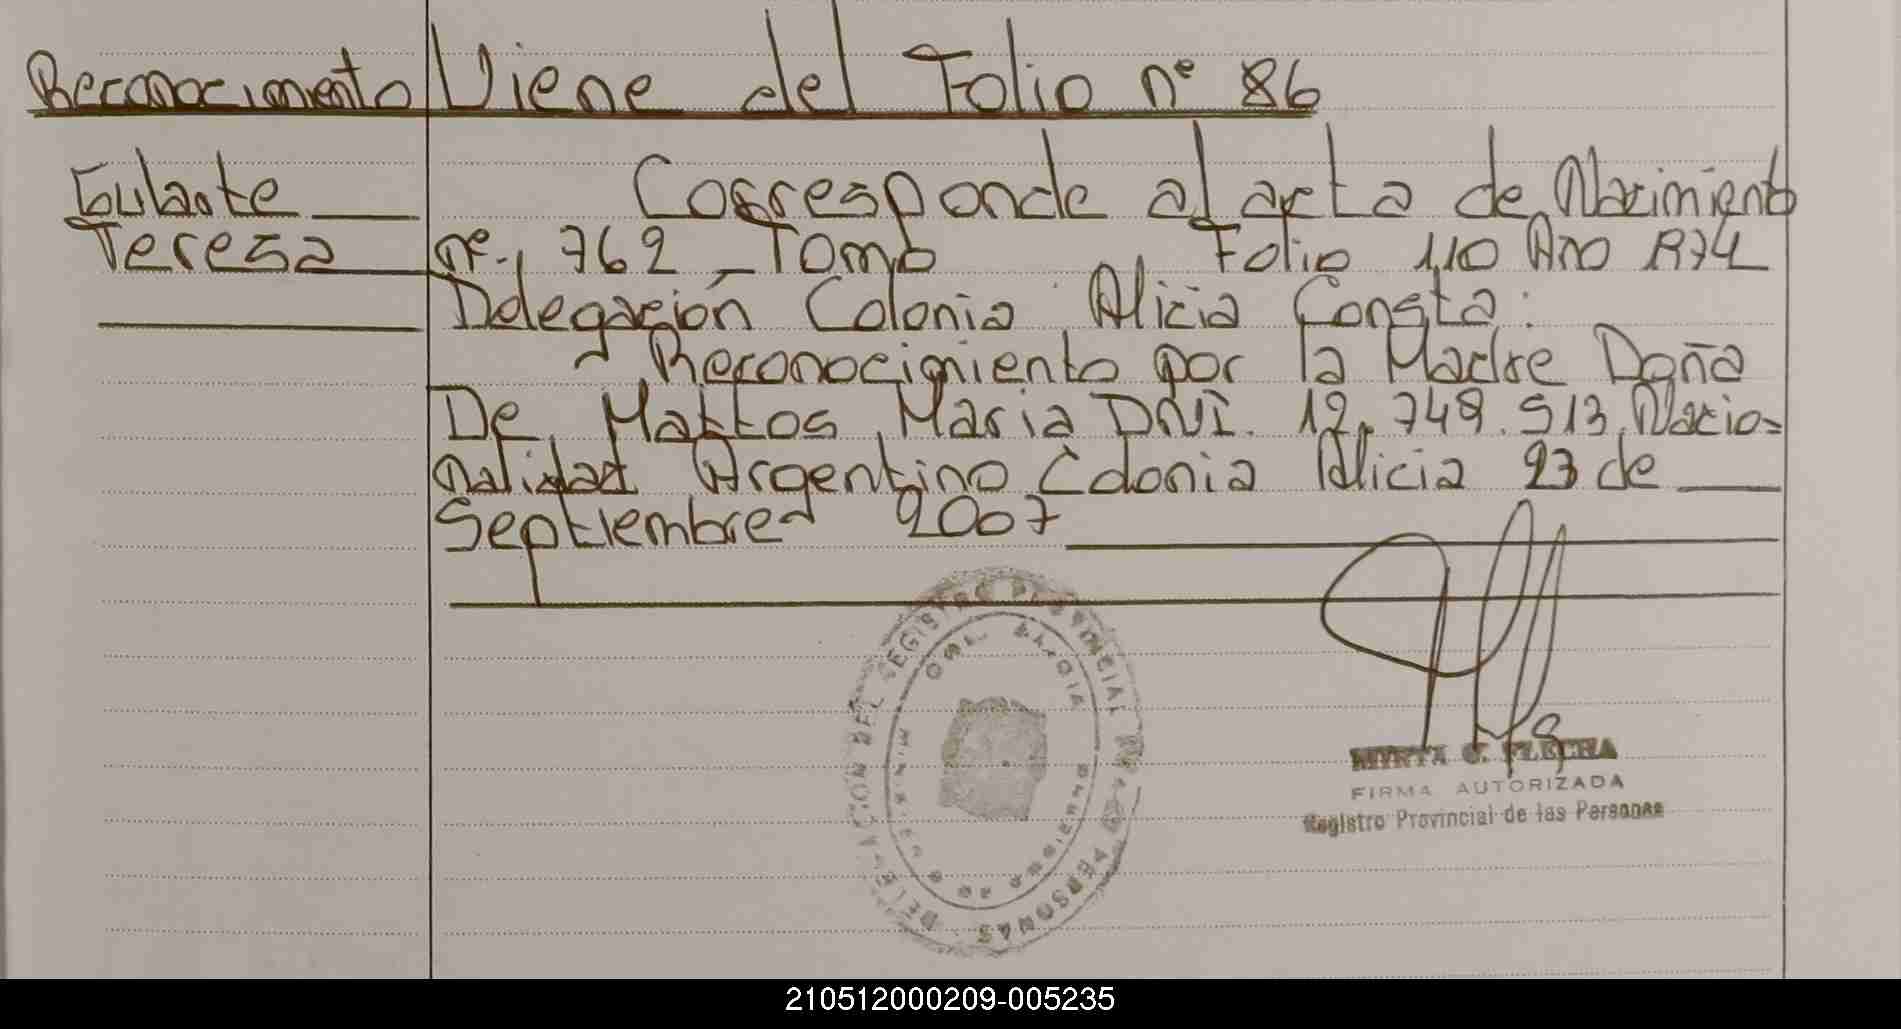 Reconocimiento Viene del Folio nº 86
Gularte Corresponde al acta de Nacimiento
Teresa nº. 762 Tomo Folio 110 Año 1974
Delegación Colonia Alicia Consta:
Reconocimiento por la Madre Doña
De Mattos Maria DNI. 12.748.513 Nacio=
nalidad Argentino Colonia Alicia 23 de
Septiembre 2007
DELEGACION DEL REGISTRO PROVINCIAL DE LAS PERSONAS
COL. ALICIA
MYRTA G. FLECHA
FIRMA AUTORIZADA
Registro Provincial de las Personas
210512000209-005235